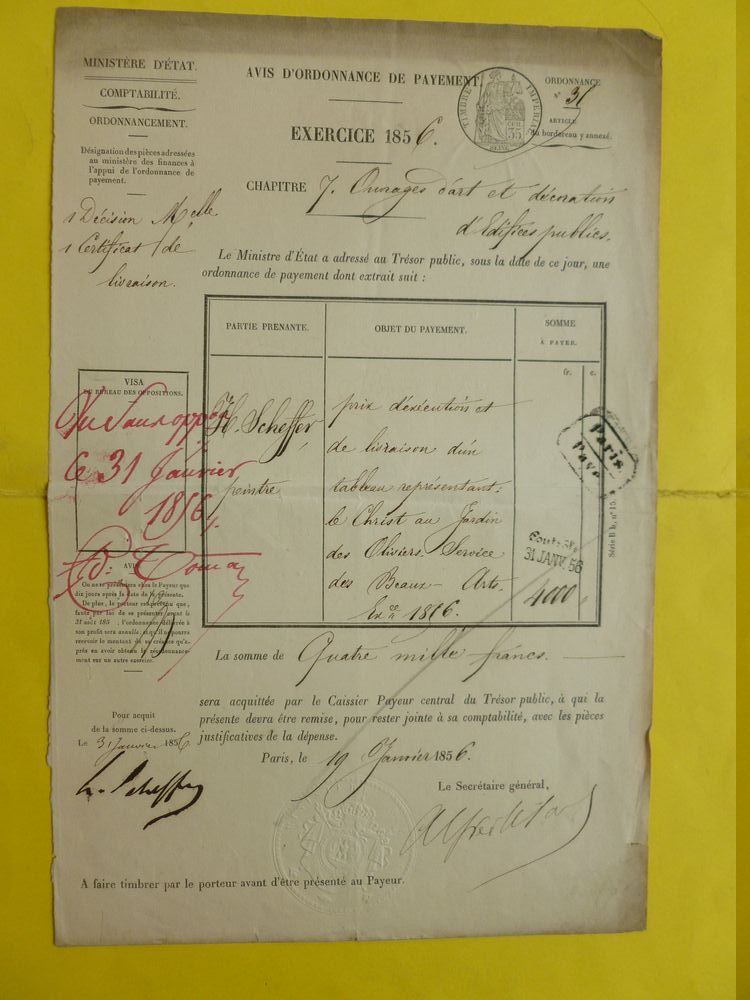 MINISTÈRE D'ÉTAT.
COMPTABILITÉ.
ORDONNANCEMENT.
Désignation des pièces adressées
au ministère des finances à
l'appui de l'ordonnance de
payement.
1 Décision Melle
1 Certificat de
livraison.
AVIS D'ORDONNANCE DE PAYEMENT
EXERCICE 1856.
TIMBRE IMPÉRIAL
35
SEINE
ORDONNANCE
n° 31
ARTICLE
du bordereau y annexé.
CHAPITRE 7. Ouvrages d'art et décoration
d'Edifices publics.
Le Ministre d'État a adressé au Trésor public, sous la date de ce jour, une
ordonnance de payement dont extrait suit :
PARTIE PRENANTE.
OBJET DU PAYEMENT.
SOMME
À PAYER.
fr. c.
H. Scheffer,
peintre
prix d'exécution et
de livraison d'un
tableau représentant:
le Christ au Jardin
des Oliviers. Service
des Beaux-Arts.
Exce 1856.
4000
Paris
Paye
Contrôle
31 JANV. 56
Série B b, n° 15.
VISA
DU BUREAU DES OPPOSITIONS.
Vu Sans oppon
Ce 31 Janvier
1856
AVIS
On ne se présentera chez le Payeur que
dix jours après la date de la présente.
De plus, le porteur est prévenu que,
faute par lui de se présenter avant le
31 août 185 , l'ordonnance délivrée à
son profit sera annulée, et qu'il ne pourra
recevoir le montant de sa créance qu'a-
près en avoir obtenu le réordonnance-
ment sur un autre exercice.
La somme de Quatre mille francs.
sera acquittée par le Caissier Payeur central du Trésor public, à qui la
présente devra être remise, pour rester jointe à sa comptabilité, avec les pièces
justificatives de la dépense.
Paris, le 19 Janvier 1856.
Le Secrétaire général,
Pour acquit
de la somme ci-dessus.
Le 31 Janvier 1856
h. Scheffer
À faire timbrer par le porteur avant d'être présenté au Payeur.